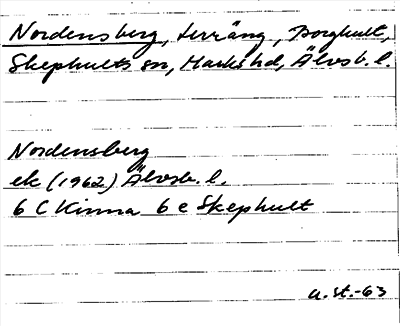 Nordensberg, terräng, Borghult,
Skephults sn, Marks hd, Älvsb. l.
Nordensberg
ek (1962) Älvsb. l.
6 C Kinna 6 e Skephult
a. st. -63